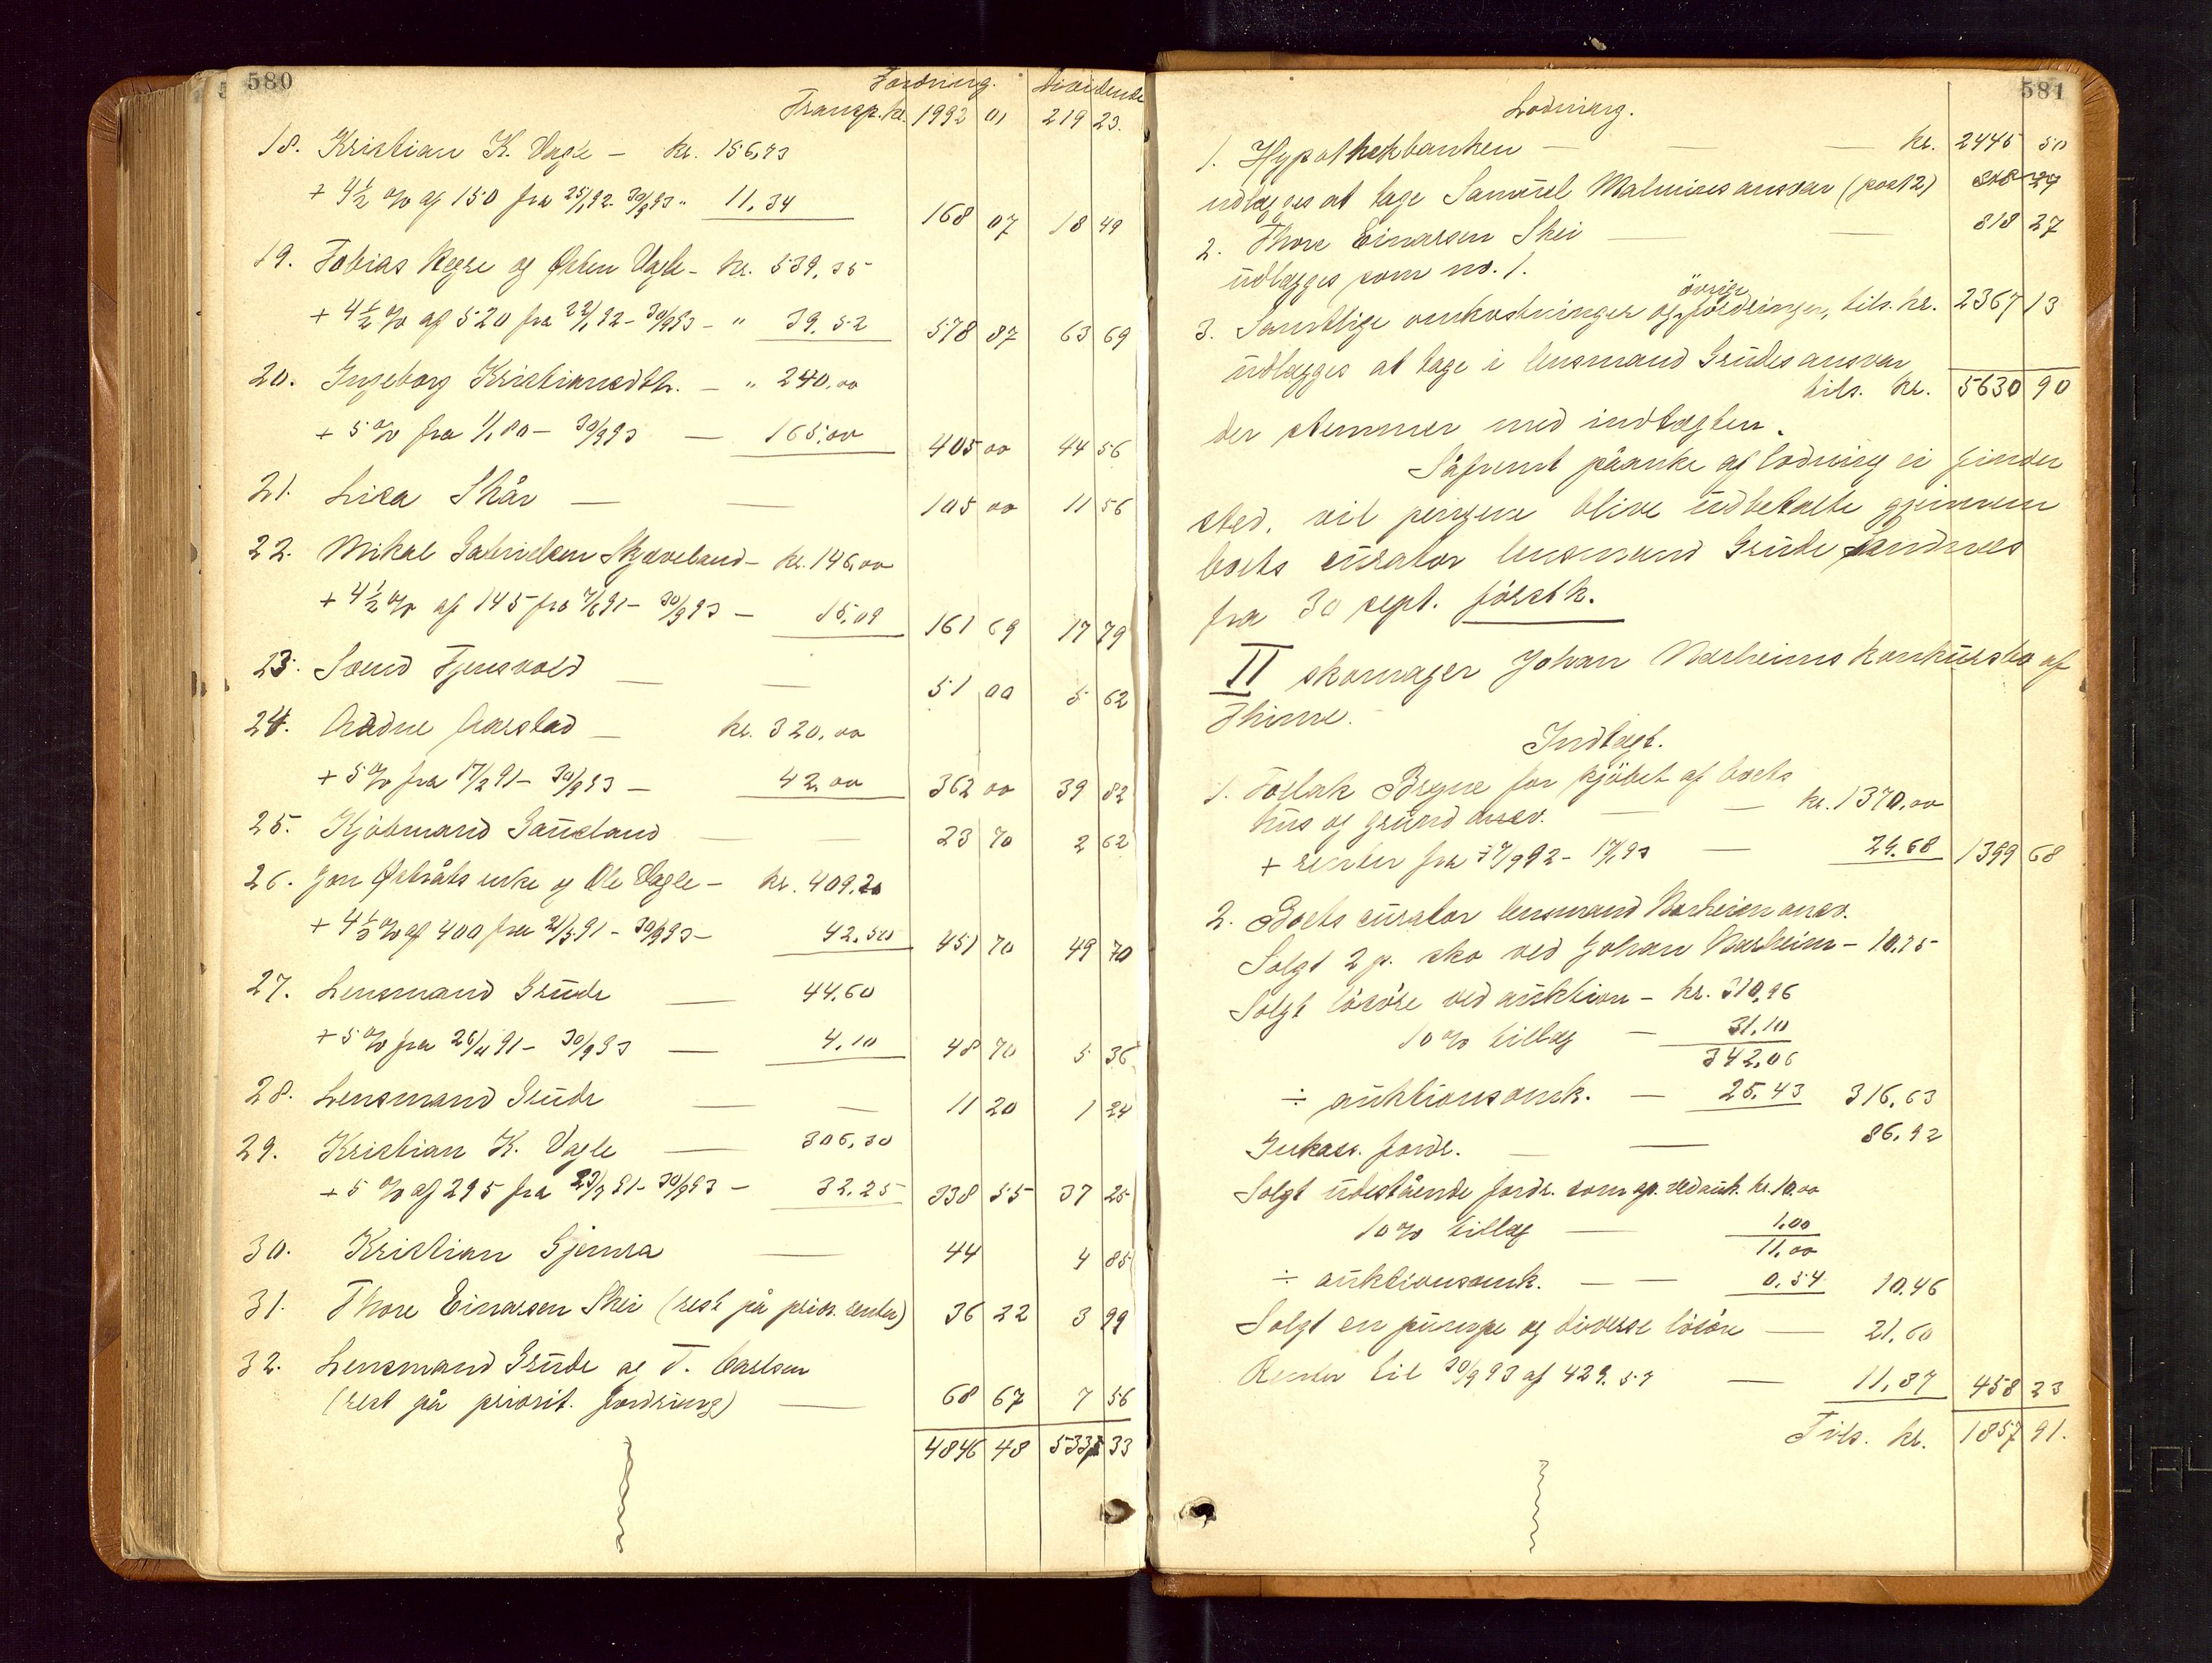 580
Fordring. Dividende
Transp. kr. 1992 01 219 23.
18. Kristian K. Vagle – kr. 156,73
+ 4½ % af 150 fra 25/1 92 - 30/9 93 " 11,34 168 07 18 49
19. Tobias Regse og Østen Vagle – kr. 539,35
+ 4½ % af 520 fra 22/1 92 - 30/9 93 – " 39,52 578 87 63 69
20. Ingeborg Kristiansdtr. – " 240,00
+ 5 % fra 1/1 80 – 30/9 93 — 165,00 405 00 44 56
21. Lisa Skår — — 105 00 11 56
22. Mikal Gabrielsen Skjæveland – kr. 146,00
+ 4½ % af 145 fra 7/6 91 – 30/9 93 – 15,09 161 69 17 79
23. Svend Tjensvold — — 51 00 5 62
24. Aadne Aarstad — kr. 320,00
+ 5 % fra 17/2 91 – 30/9 93 – 42,00 362 00 39 82
25. Kjøbmand Gauseland — — 23 70 2 62
26. Jon Østråts enke og Ole Vagle – kr. 409,20
+ 4½ % af 400 fra 21/5 91 – 30/9 93 – 42,50 451 70 49 70
27. Lensmand Grude — 44,60
+ 5 % fra 26/11 91 – 30/9 93 — 4,10 48 70 5 36
28. Lensmand Grude — — 11 20 1 24
29. Kristian K. Vagle — 306,30
+ 5 % af 295 fra 23/7 91 – 30/9 93 – 32,25 338 55 37 25
30. Kristian Gjemra — 44 4 85
31. Thore Einarsen Skei (rest på prior. renter) 36 22 3 99
32. Lensmand Grude og T. Carlsen
(rest på priorit. fordring) — 68 67 7 56
4846 48 533 33
581
Lodning.
1. Hypothekbanken — — — kr. 2445 50
udlægges at tage Samuel Malmins ansvar (post 2)
2. Thore Einarsen Skei — — 818 27
udlægges som no. 1.
3. Samtlige omkostninger og øvrige fordringer, tils. kr. 2367 13
udlægges at tage i lensmand Grudes ansvar
tils. kr. 5630 90
der stemmer med indtægten.
Såfremt påanke af lodning ei finder
sted, vil pengene blive udbetalte gjennem
boets curator lensmand Grude Sandnes
fra 30 sept. førstk.
II skomager Johan Nærheims konkursbo af
Thime.
Indtægt.
1. Tollak Bryne for kjøbet af boets
hus og grund ansv. — — kr. 1370,00
+ renter fra 27/9 92 – 1/1 93 — 29.68 1399 68
2. Boets curator lensmand Nærheim ansv.
Solgt 2 p. sko ved Johan Nærheim – 10,75
Solgt løsøre ved auktion – kr. 310,96
10 % tillæg — 31,10
342,06
÷ auktionsomk. — 25,43 316,63
Inkass. fordr. — — 86,92
Solgt udestående fordr. som op. ved auk. kr. 10.00
10 % tillæg — 1,00
11,00
÷ auktionsomk. — — 0,54 10,46
Solgt en pumpe og diverse løsøre — 21,60
Renter til 30/9 93 af 429.57 — 11,87 458 23
Tils. kr. 1857 91.